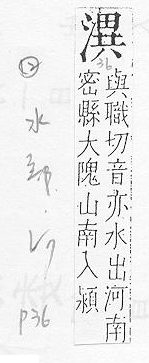 潩
36
與職切音亦水出河南
密縣大隗山南入潁
水部
p36